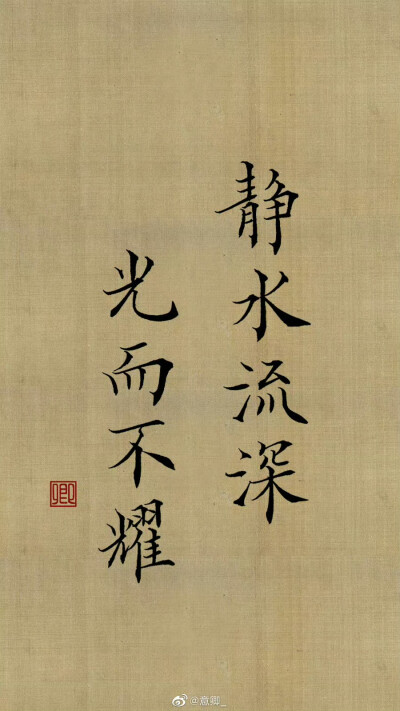 静水流深
光而不耀
卿
@意卿_